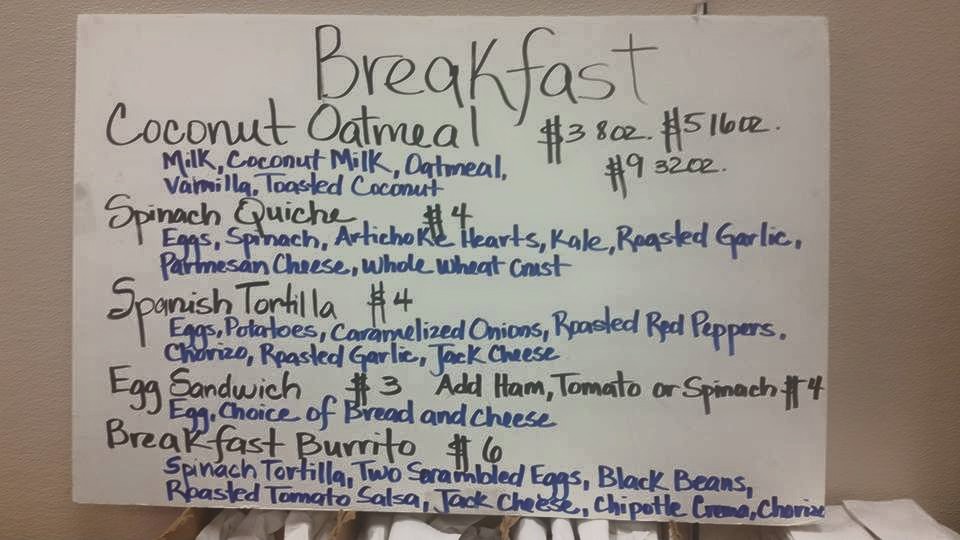 Breakfast
Coconut Oatmeal $3 8oz. $5 16oz.
$9 32oz.
Milk, Coconut Milk, Oatmeal,
Vanilla, Toasted Coconut
Spinach Quiche $4
Eggs, Spinach, Artichoke Hearts, Kale, Roasted Garlic,
Parmesan Cheese, Whole Wheat Crust
Spanish Tortilla $4
Eggs, Potatoes, Caramelized Onions, Roasted Red Peppers,
Chorizo, Roasted Garlic, Jack Cheese
Egg Sandwich $3 Add Ham, Tomato or Spinach $4
Egg, Choice of Bread and Cheese
Breakfast Burrito $6
Spinach Tortilla, Two Scrambled Eggs, Black Beans,
Roasted Tomato Salsa, Jack Cheese, Chipotle Crema, Chorizo